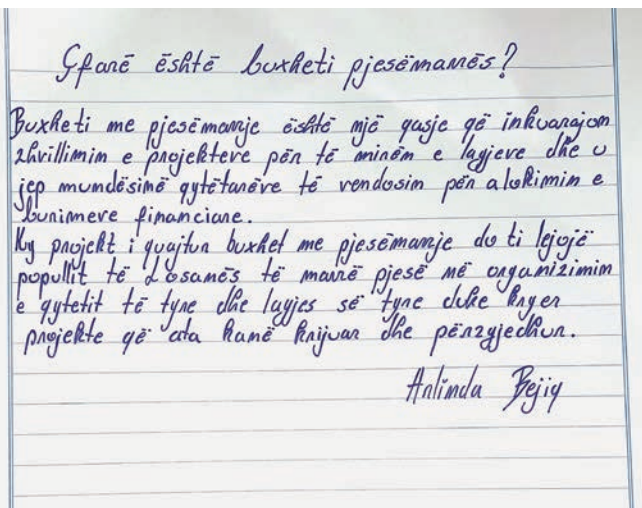 Çfarë është buxheti pjesëmarrës?
Buxheti me pjesëmarrje është një qasje që inkurajon
zhvillimin e projekteve për të mirën e lagjeve dhe u
jep mundësinë qytetarëve të vendosin për alokimin e
burimeve financiare.
Ky projekt i quajtur buxhet me pjesëmarrje do ti lejojë
popullit të Losanës të marrë pjesë në organizimin
e qytetit të tyre dhe lagjes së tyre duke kryer
projekte që ata kanë krijuar dhe përzgjedhur.
Arlinda Bejiq